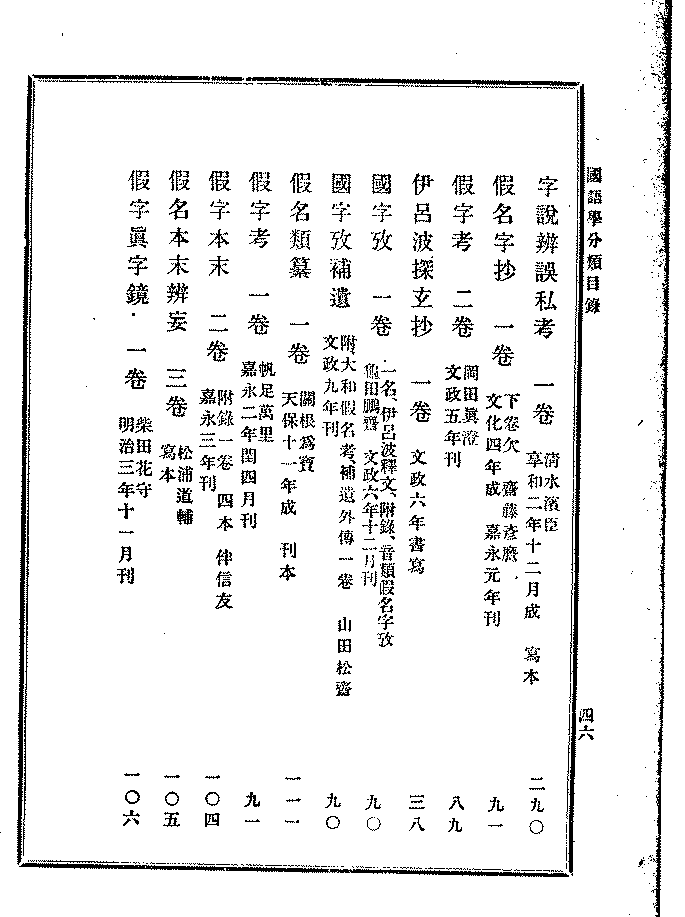 國語學分類目錄
四六
字說辨誤私考 一卷 清水濱臣 享和二年十二月成 寫本 二九〇
假名字抄 一卷 下卷欠 齋藤彥麿 文化四年成 嘉永元年刊 九一
假字考 二卷 岡田眞澄 文政五年刊 八九
伊呂波探玄抄 一卷 文政六年書寫 三八
國字攷 一卷 一名、伊呂波釋文、附錄、音類假名字攷 龜田鵬齋 文政六年十二月刊 九〇
國字攷補遺 附、大和假名考、補遺外傳一卷 山田松齋 文政九年刊 九〇
假名類纂 一卷 關根爲寶 天保十一年成 刊本 一一一
假字考 一卷 帆足萬里 嘉永二年閏四月刊 九一
假字本末 二卷 附錄一卷 四本 伴信友 嘉永三年刊 一〇四
假名本末辨妄 三卷 松浦道輔 寫本 一〇五
假字眞字鏡 一卷 柴田花守 明治三年十一月刊 一〇六